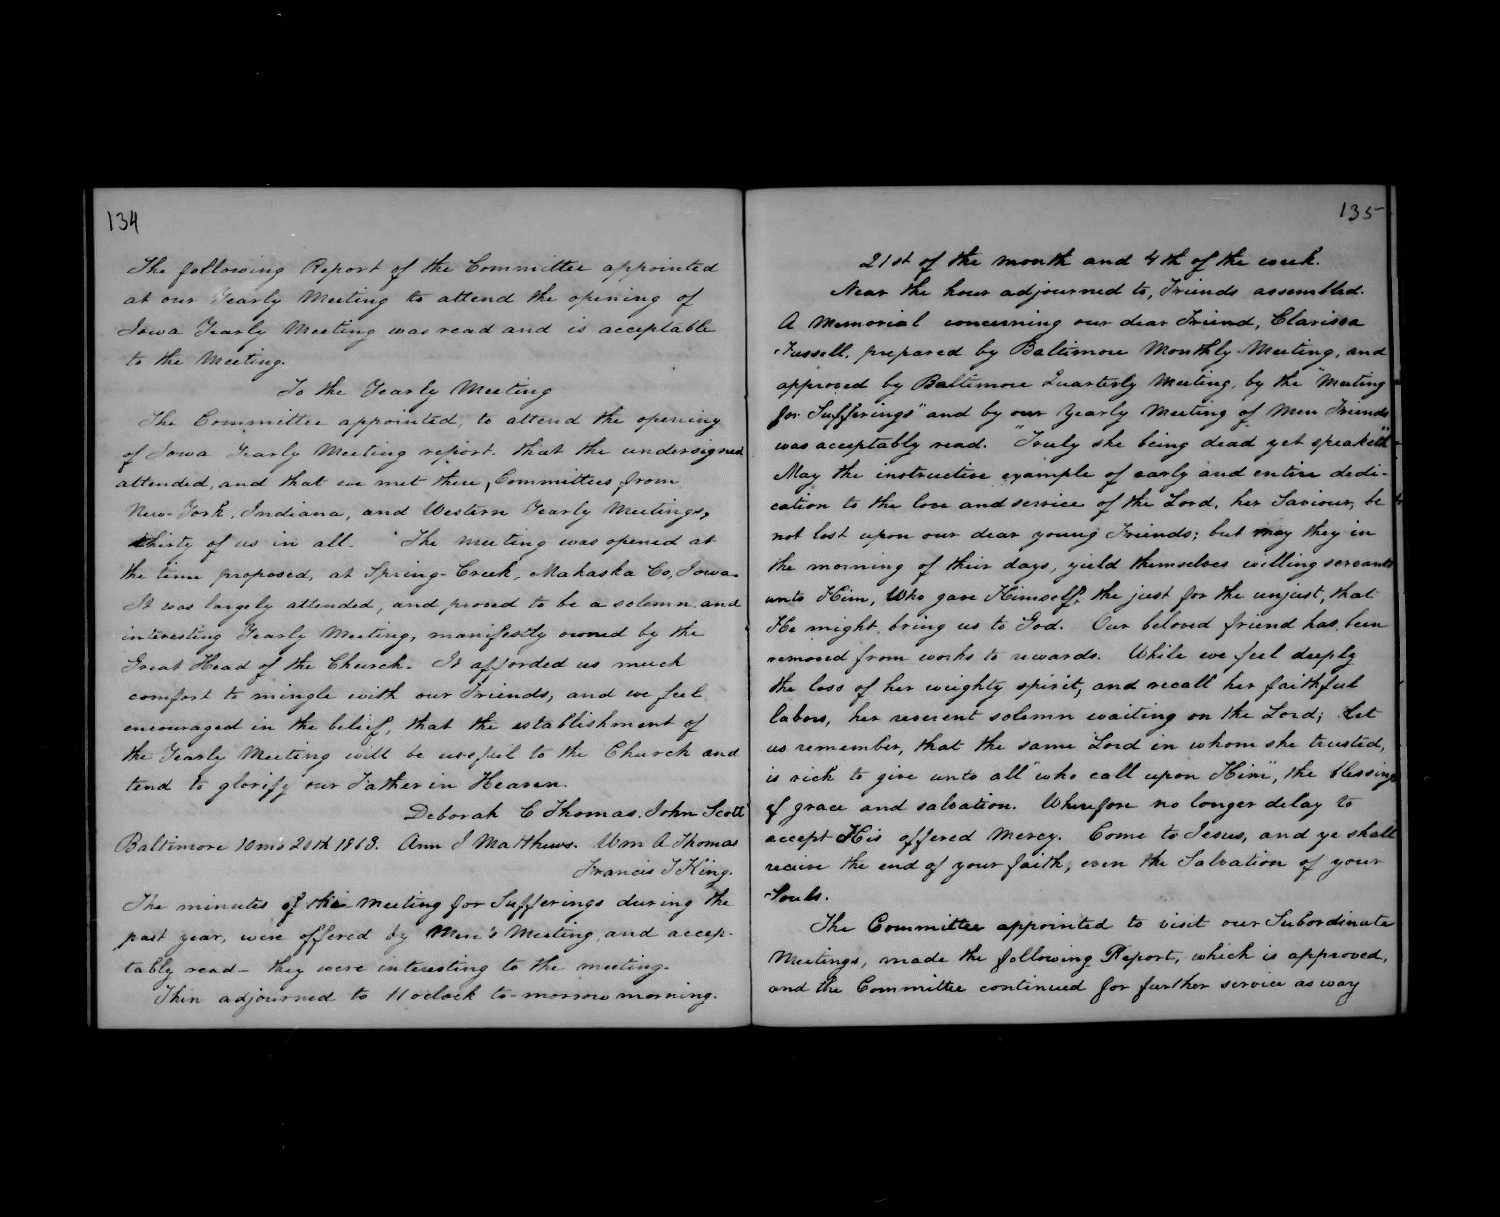 134
The following Report of the Committee appointed
at our Yearly Meeting to attend the opening of
Iowa Yearly Meeting was read and is acceptable
to the Meeting.
To the Yearly Meeting
The Committee appointed, to attend the opening
of Iowa Yearly Meeting report that the undersigned
attended, and that we met there, Committees from
New-York, Indiana, and Western Yearly Meetings,
thirty of us in all. The meeting was opened at
the time proposed, at Spring-Creek, Mahaska Co, Iowa.
It was largely attended, and proved to be a solemn and
interesting Yearly Meeting, manifestly owned by the
Great Head of the Church. It afforded us much
comfort to mingle with our Friends, and we feel
encouraged in the belief, that the establishment of
the Yearly Meeting will be useful to the Church and
tend to glorify our Father in Heaven.
Deborah C Thomas. John Scott
Baltimore 10 mo 20th 1863. Ann J Matthews. Wm A Thomas
Francis T King.
The minutes of the Meeting for Sufferings during the
past year, were offered by Men's Meeting, and accep-
tably read - they were interesting to the meeting.
Then adjourned to 11 oclock to-morrow morning.
135
21st of the month and 4th of the week.
Near the hour adjourned to, Friends assembled.
A Memorial concerning our dear Friend, Clarissa
Fussell, prepared by Baltimore Monthly Meeting, and
approved by Baltimore Quarterly Meeting, by the "Meeting
for Sufferings" and by our Yearly Meeting of Men Friends
was acceptably read. "Truly she being dead yet speaketh"
May the instructive example of early and entire dedi-
cation to the love and service of the Lord, her Saviour, be
not lost upon our dear young Friends; but may they in
the morning of their days, yield themselves willing servants
unto Him, Who gave Himself, the just for the unjust, that
He might bring us to God. Our beloved friend has been
removed from works to rewards. While we feel deeply
the loss of her weighty spirit, and recall her faithful
labors, her reverent solemn waiting on the Lord; let
us remember, that the same Lord in whom she trusted,
is rich to give unto all "who call upon Him", the blessing
of grace and salvation. Wherefore no longer delay to
accept His offered Mercy. Come to Jesus, and ye shall
receive the end of your faith, even the Salvation of your
Souls.
The Committee appointed to visit our Subordinate
Meetings, made the following Report, which is approved,
and the Committee continued for further service as way